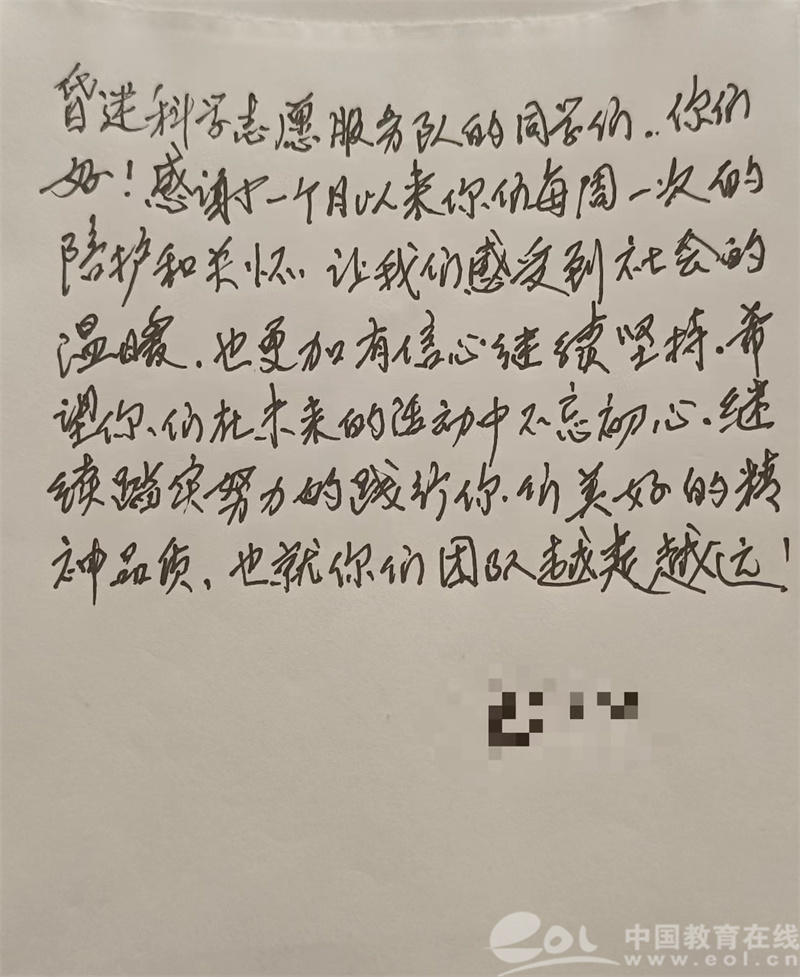 昏迷科学志愿服务队的同学们，你们
好！感谢一个月以来你们每周一次的
陪护和关怀，让我们感受到社会的
温暖，也更加有信心继续坚持。希
望你们在未来的活动中不忘初心，继
续踏实努力的践行你们美好的精
神品质，也就你们团队越走越远！
eol 中国教育在线
www.eol.cn